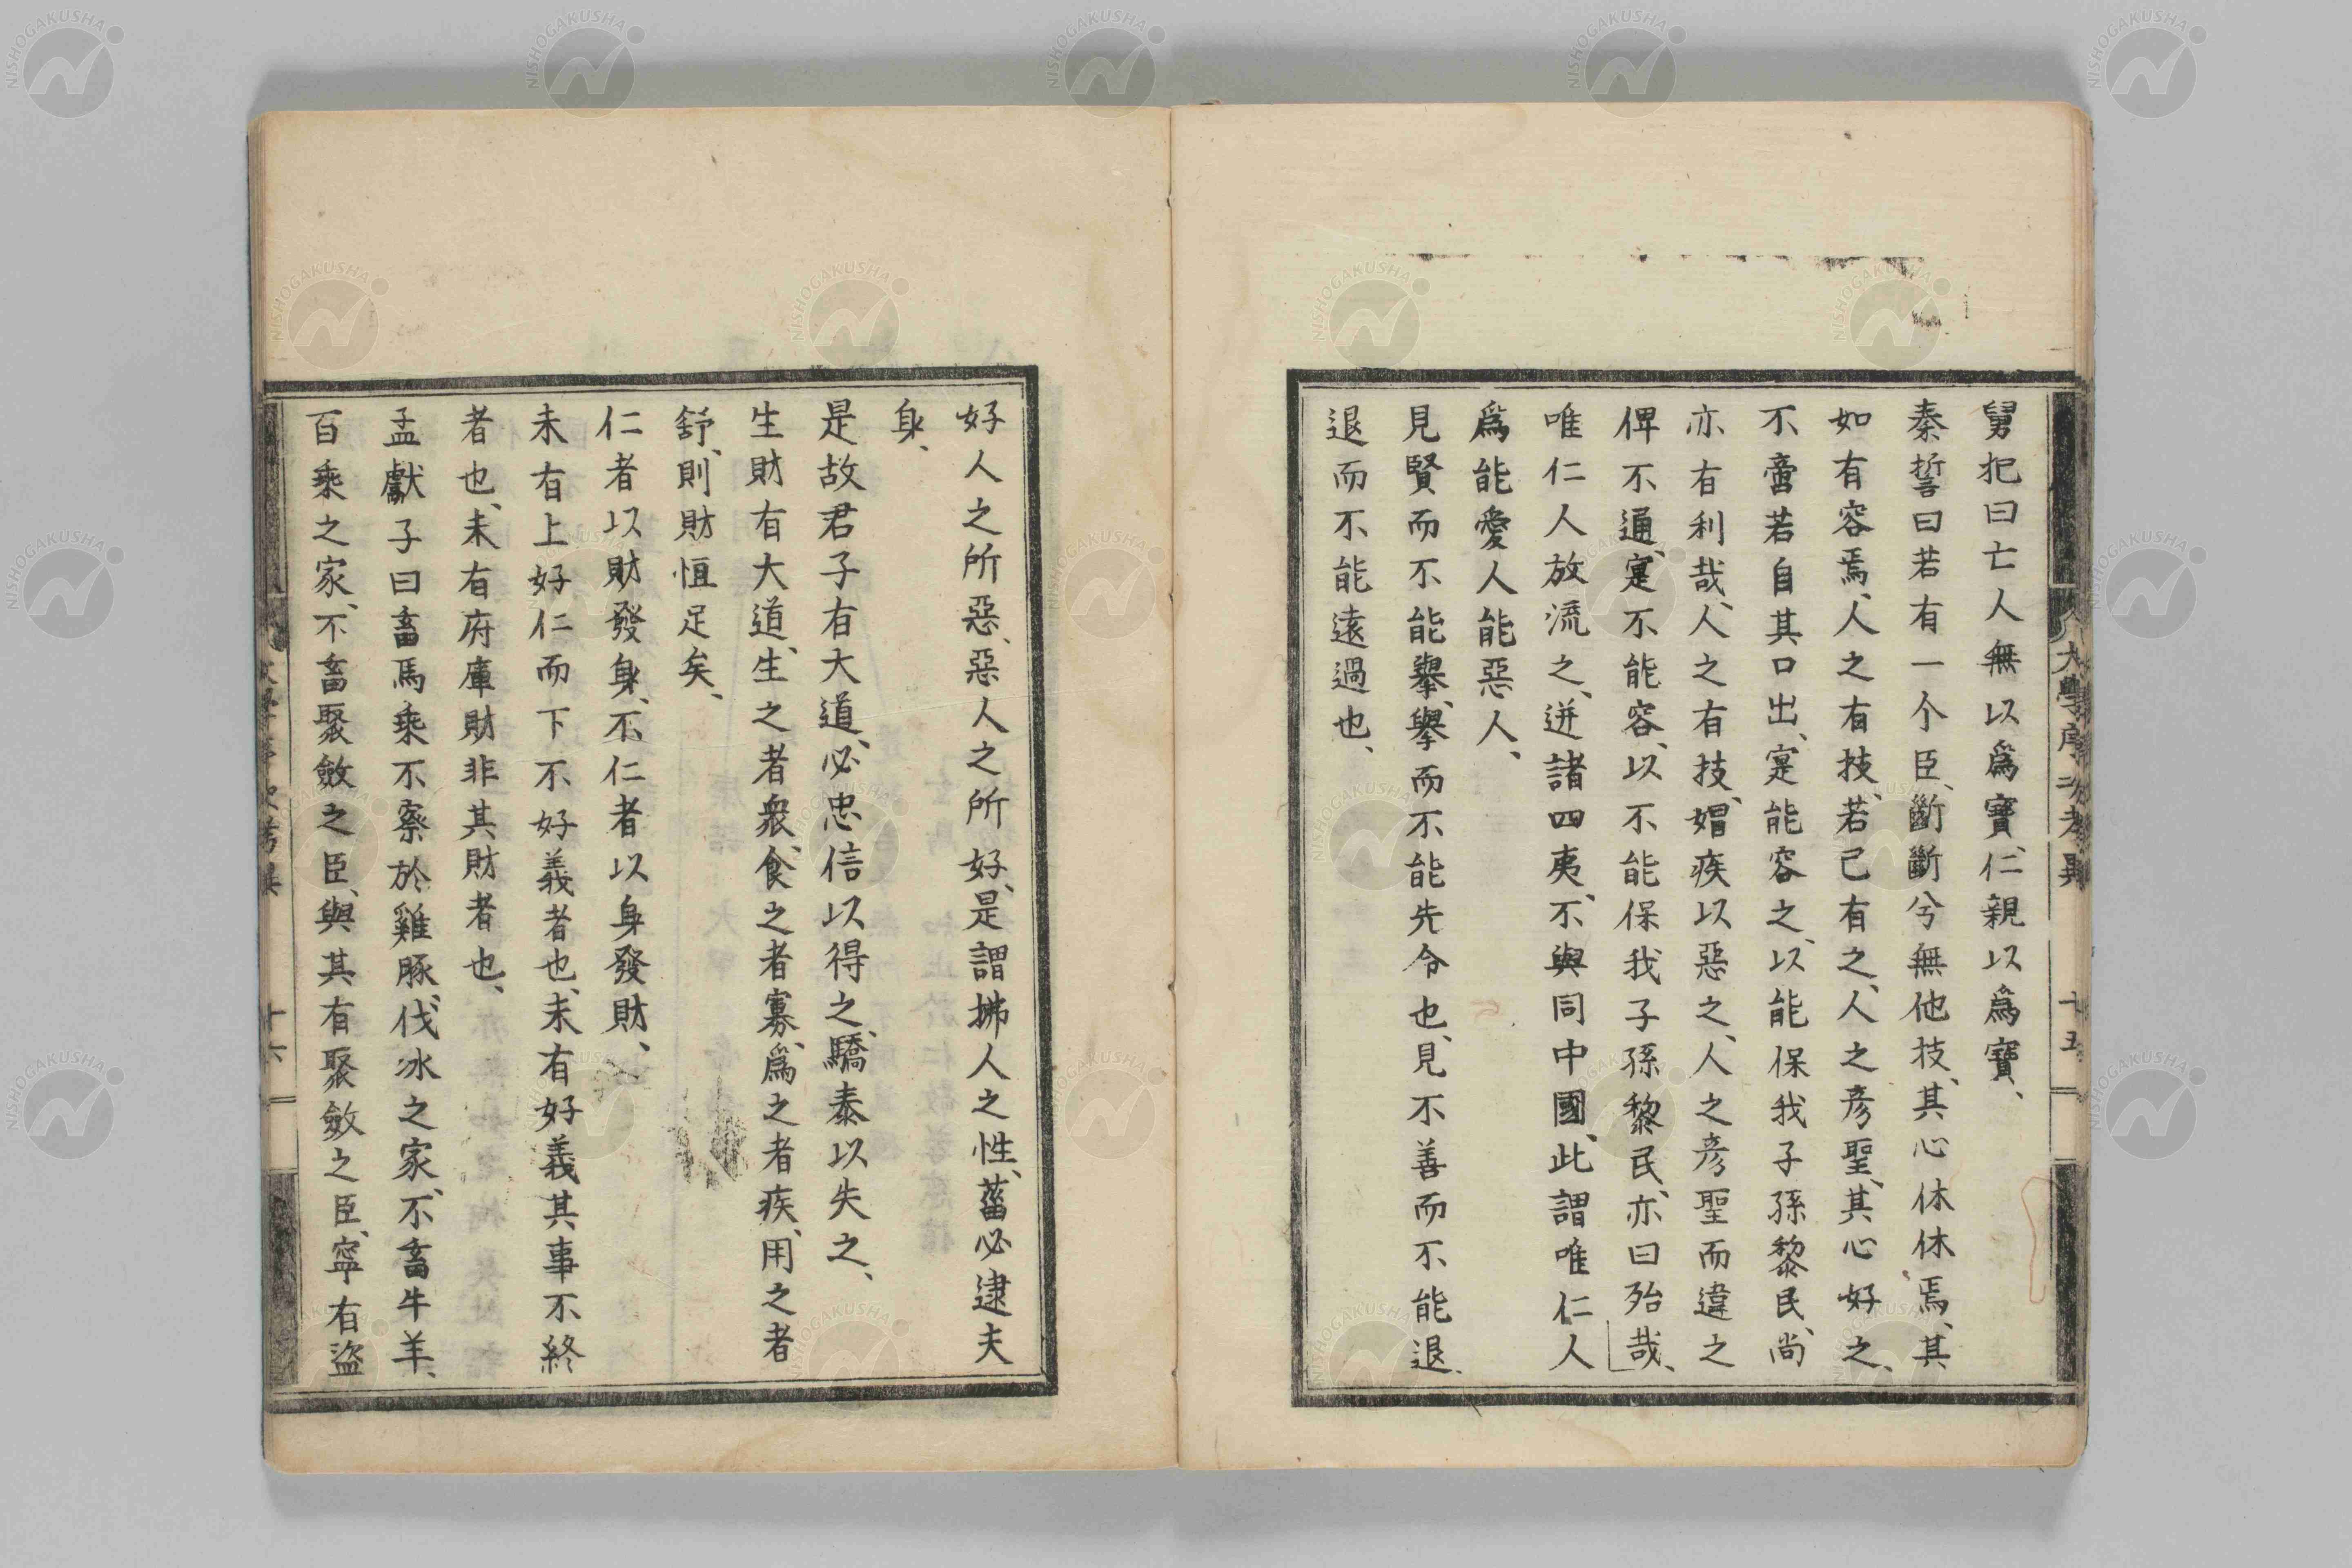 舅犯曰亡人無以爲寶、仁親以爲寶、
秦誓曰若有一个臣、斷斷兮無他技、其心休休焉、其
如有容焉、人之有技、若己有之、人之彦聖、其心好之、
不啻若自其口出、寔能容之、以能保我子孫黎民、尚
亦有利哉、人之有技、媢疾以惡之、人之彦聖而違之
俾不通、寔不能容、以不能保我子孫黎民、亦曰殆哉、
唯仁人放流之、迸諸四夷、不與同中國、此謂唯仁人
爲能愛人能惡人、
見賢而不能舉、舉而不能先令也、見不善而不能退、
退而不能遠過也、
大學序次考異
十五
好人之所惡、惡人之所好、是謂拂人之性、菑必逮夫
身、
是故君子有大道、必忠信以得之、驕泰以失之、
生財有大道、生之者衆、食之者寡、爲之者疾、用之者
舒、則財恒足矣、
仁者以財發身、不仁者以身發財、
未有上好仁而下不好義者也、未有好義其事不終
者也、未有府庫財非其財者也、
孟獻子曰畜馬乘不察於雞豚、伐冰之家、不畜牛羊、
百乘之家、不畜聚斂之臣、與其有聚斂之臣、寧有盜
大學序次考異
十六
NISHOGAKUSHA